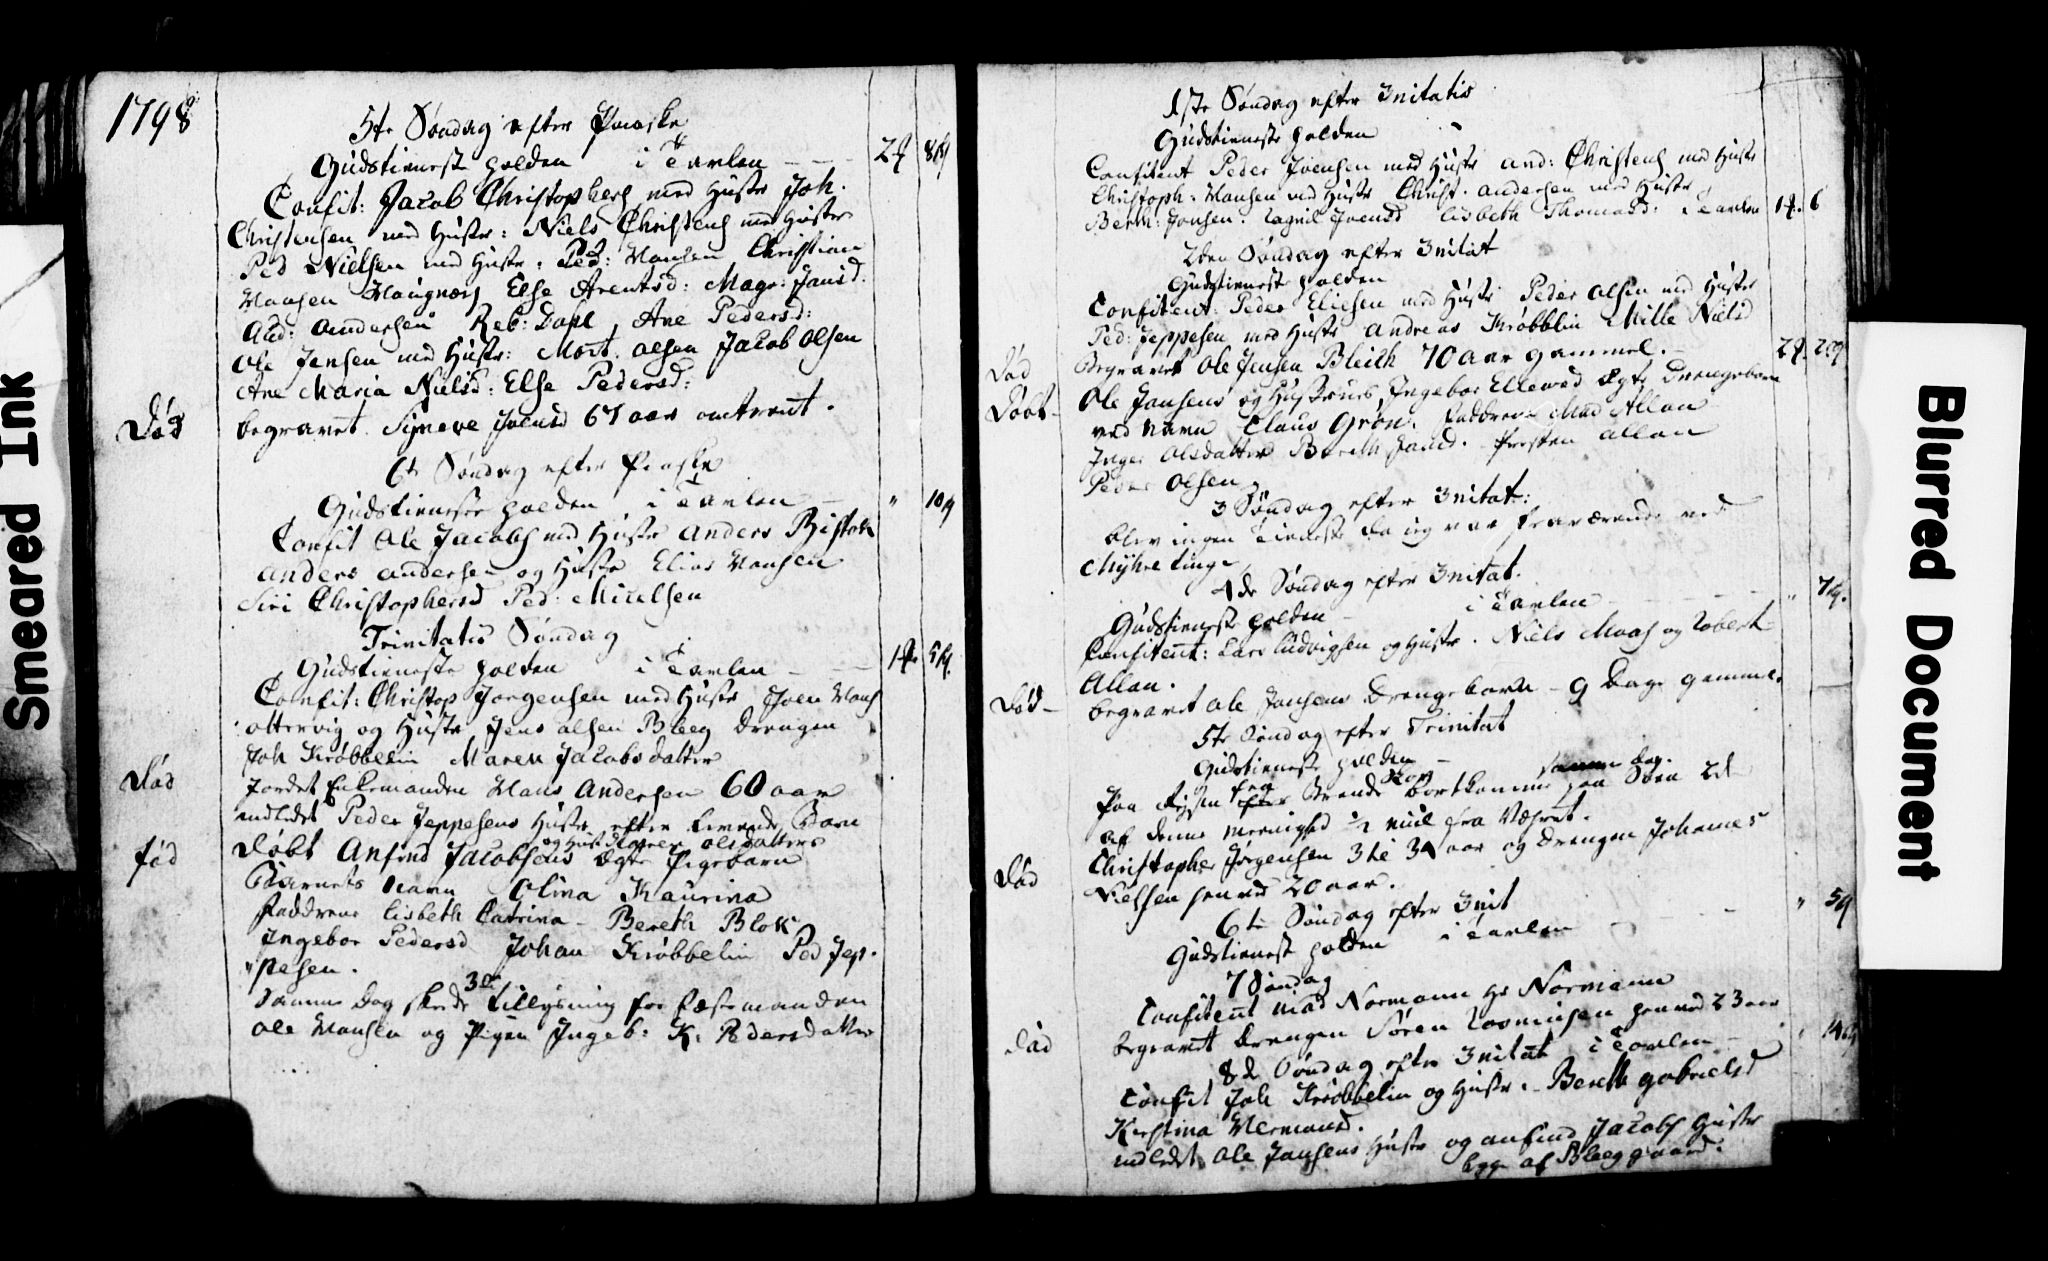 Smeared Ink
1798
5te Søndag efter Paaske
Gudstieneste holden i Tavlen - - - 2 8
Confit: Jacob Christophers med Hustr Joh.
Christensen med Hustr: Niels Christens med Hustr
Ped Nielsen med Hustr. Ped: Hansen Christian
Hansen Haugnæs Else Arentsd: Magr: Jansd.
And: Andersen Reb: Dahl, Ane Pedersd:
Ole Jensen med Hustr: Mort. Olsen Jacob Olsen
Ane Maria Nielsd: Else Pedersd:
Død begravet Syneve Joensd 67 aar omtrent.
6te Søndag efter Paaske
Gudstieneste holden i Tavlen - " 10
Confit Ole Jacobs med Hustr Anders
Anders Andersen og Hustr Elias Hansen
Siri Christophersd Ped: Mielsen
Trinitatis Søndag
Gudstieneste holden i Tavlen - - - 1 5
Confit: Christop Jørgensen med Hustr Joen Hans
ottervig og Hustr Jens Olsen Bleeg Drengen
Joh Krøbbelin Maren Jacobsdatter
Død Jordet Enkemanden Hans Andersen 60 aar
indledet Peder Jeppesens Hustr efter Barn
og Hust Karen Olsdatters
fød Døbt Anfind Jacobsens ægte Pigebarn
Barnets Navn Olina Kaurina
Faddrene Lisbeth Catrina - Bereth Blok
Ingebor Pedersd Johan Krøbbelin Ped Jep-
"pesen.
3de
Samme Dag skede Tillysning for Fæstemanden
Ole Hansen og Pigen Ingeb: K. Pedersdatter
1ste Søndag efter 3nitatis
Gudstieneste holden
Confitent Peder Joensen med Hustr And: Christens med Hustr
Christoph: Hansen med Hustr Christ. Andersen med Hustr
Bernt: Jonsen. Ragnil Joensd Lisbeth Thomasd: Tavlen 1. 6
2den Søndag efter 3nitat
Gudstieneste holden
Confitent: Peder Eliesen med Hustr Peder Olsen med Hustr
Ped: Jeppesen med Hustr Andreas Krøbblin Mille Nielsd
Død Begravet Ole Jensen Bleich 70 aar gammel. - 2
Døbt - Ole Jansens og Hustrues Ingebor Ellewsd ægte Drengebarn
ved Navn Claus Grøn. Faddrene Mad Allan
Inger Olsdatter Bereth Jansd. Presten Allan
Peder Olsen.
3 Søndag efter 3nitat:
blev ingen Tieneste da ieg var fraværende ved
Myhre ting.
4de Søndag efter 3nitat.
Gudstieneste holden - i Tavlen - - - " 7
Confitent: Lars Ludvigsen og Hustr. Niels Maas og Robert
Allan.
Død - begravet Ole Jansens Drengebarn - 9 Dage gammel.
5te Søndag efter Trinitat
Gudstieneste holden -
samme Dag.
fra
Paa Reysen bortkomme paa Søen 2de
af denne Meenighed ½ miil fra Været.
Død Christopher Jørgensen 3 aar og Drengen Johannes
Nielsen henved 20 aar.
6te Søndag efter 3nit
Gudstieneste holden i Tavlen - - - " 5
7 Søndag
Confitent Mad Normann Hr Normann
Død begravet Drengen Søren Rasmusen henved 23 aar
8de Søndag efter 3nitat i Tavlen - " 14
Confit Joh Krøbbelin og Hustr. Bereth Gabrielsd
Kirstina Hermansd.
indledet Ole Jansens Hustr og Anfind Jacobs Hustr
begge af Bleeggaard.
Blurred Document